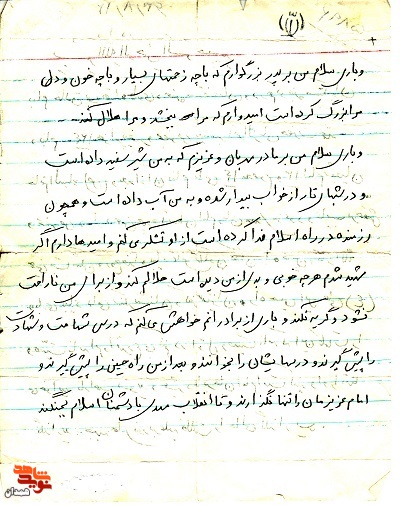 (۳)
و باری سلام من بر پدر بزرگوارم که با چه زحمتهای بسیار و با چه خون و دل
مرا بزرگ کرده است امیدوارم که مرا ببخشد و مرا حلال کند
و باری سلام من بر مادر مهربان و عزیزم که به من شیر سفید داده است
و در شبهای تار از خواب بیدار شده و به من آب داده است و همچون
رزمنده در راه اسلام فدا کرده است از او تشکر می کنم و امیدها دارم اگر
شهید شدم هر چه خوبی و بدی از من دیده است حلالم کند و از برای من ناراحت
نشود و گریه نکند و باری از برادرانم خواهش می کنم که درس شهامت و شهادت
را پیش گیرند و درسهایشان را بخوانند و بعد از من راه حسین را پیش گیرند و
امام عزیزمان را تنها نگذارند و تا انقلاب مهدی با دشمنان اسلام بجنگند
نوید شاهد
همدان